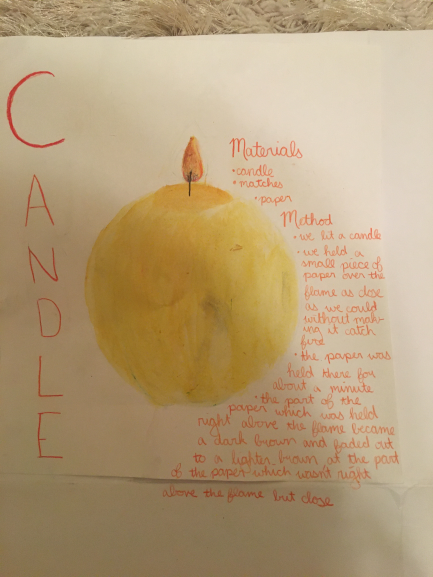 CANDLE
Materials
• candle
• matches
• paper
Method
• we lit a candle
• we held a
small piece of
paper over the
flame as close
as we could
without mak-
ing it catch
fire
• the paper was
held there for
about a minute
• the part of the
paper which was held
right above the flame became
a dark brown and faded out
to a lighter brown at the part
of the paper which wasn't right
above the flame but close